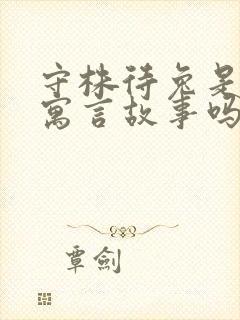 守株待兔是
寓言故事吗
覃剑